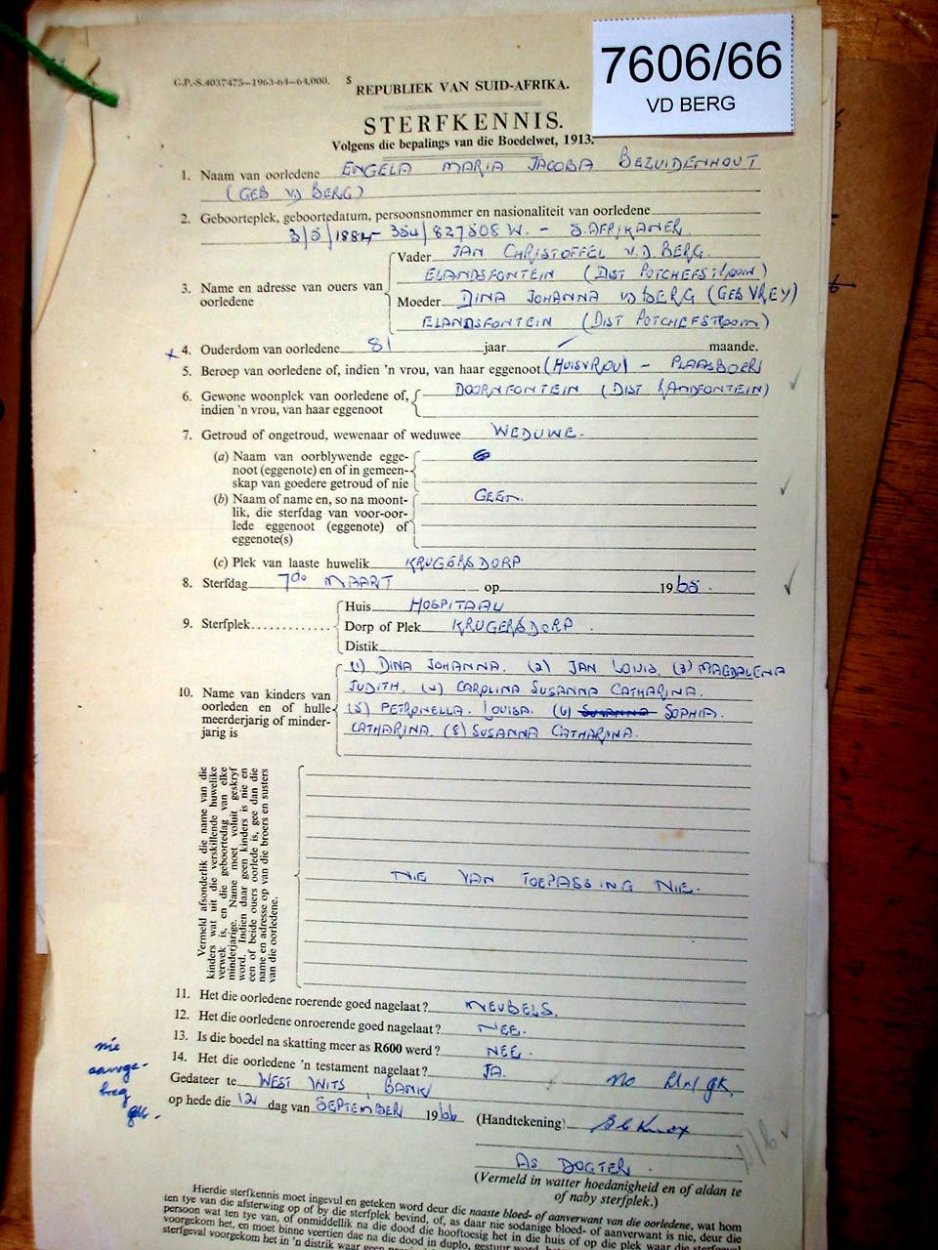 7606/66
VD BERG
G.P.-S.4037475—1963-64—64,000. S
REPUBLIEK VAN SUID-AFRIKA.
STERFKENNIS.
Volgens die bepalings van die Boedelwet, 1913.
1. Naam van oorledene ENGELA MARIA JACOBA BEZUIDENHOUT
(GEB VD BERG)
2. Geboorteplek, geboortedatum, persoonsnommer en nasionaliteit van oorledene
3/5/1884 - 354/827508 W. - S. AFRIKANER.
3. Name en adresse van ouers van oorledene
Vader JAN CHRISTOFFEL V.D BERG.
ELANDSFONTEIN (DIST POTCHEFSTROOM)
Moeder DINA JOHANNA VD BERG (GEB VREY)
ELANDSFONTEIN (DIST POTCHEFSTROOM)
x 4. Ouderdom van oorledene 81 jaar maande.
5. Beroep van oorledene of, indien 'n vrou, van haar eggenoot (HUISVROU) - PLAASBOER
6. Gewone woonplek van oorledene of, DOORNFONTEIN (DIST RANDFONTEIN)
indien 'n vrou, van haar eggenoot
7. Getroud of ongetroud, wewenaar of weduwee WEDUWE.
(a) Naam van oorblywende egge-
noot (eggenote) en of in gemeen-
skap van goedere getroud of nie
(b) Naam of name en, so na moont- GEEN.
lik, die sterfdag van voor-oor-
lede eggenoot (eggenote) of
eggenote(s)
(c) Plek van laaste huwelik KRUGERSDORP
8. Sterfdag 7DE MAART op 1965.
9. Sterfplek
Huis HOSPITAAL
Dorp of Plek KRUGERSDORP.
Distik.
10. Name van kinders van
oorleden en of hulle
meerderjarig of minder-
jarig is
(1) DINA JOHANNA. (2) JAN LOUIS. (3) MAGDALENA
JUDITH. (4) CAROLINA SUSANNA CATHARINA.
(5) PETRONELLA. LOUISA. (6) SUSANNA SOPHIA.
CATHARINA. (8) SUSANNA CATHARINA.
Vermeld afsonderlik die name van die
kinders wat uit die verskillende huwelike
verwek is, en die geboortedag van elke
minderjarige. Name moet voluit geskryf
word. Indien daar geen kinders is nie en
een of beide ouers oorlede is, gee dan die
name en adresse op van die broers en susters
van die oorledene.
NIE VAN TOEPASSING NIE.
11. Het die oorledene roerende goed nagelaat? MEUBELS.
12. Het die oorledene onroerende goed nagelaat? NEE.
13. Is die boedel na skatting meer as R600 werd? NEE.
14. Het die oorledene 'n testament nagelaat? JA.
nie
aange-
Gedateer te WEST WITS, BANK
op hede die 12 dag van SEPTEMBER 1966 (Handtekening) Knox
AS DOGTER.
(Vermeld in watter hoedanigheid en of aldan te
of naby sterfplek.)
Hierdie sterfkennis moet ingevul en geteken word deur die naaste bloed- of aanverwant van die oorledene, wat hom
ten tye van die afsterwing op of by die sterfplek bevind, of, as daar nie sodanige bloed- of aanverwant is nie, deur die
persoon wat ten tye van, of onmiddellik na die dood die hooftoesig het in die huis of op die plek waar die sterfgeval
voorgekom het, en moet binne veertien dae na die dood in duplo, gestuur word
sterfgeval voorgekom het in 'n distrik waar geen